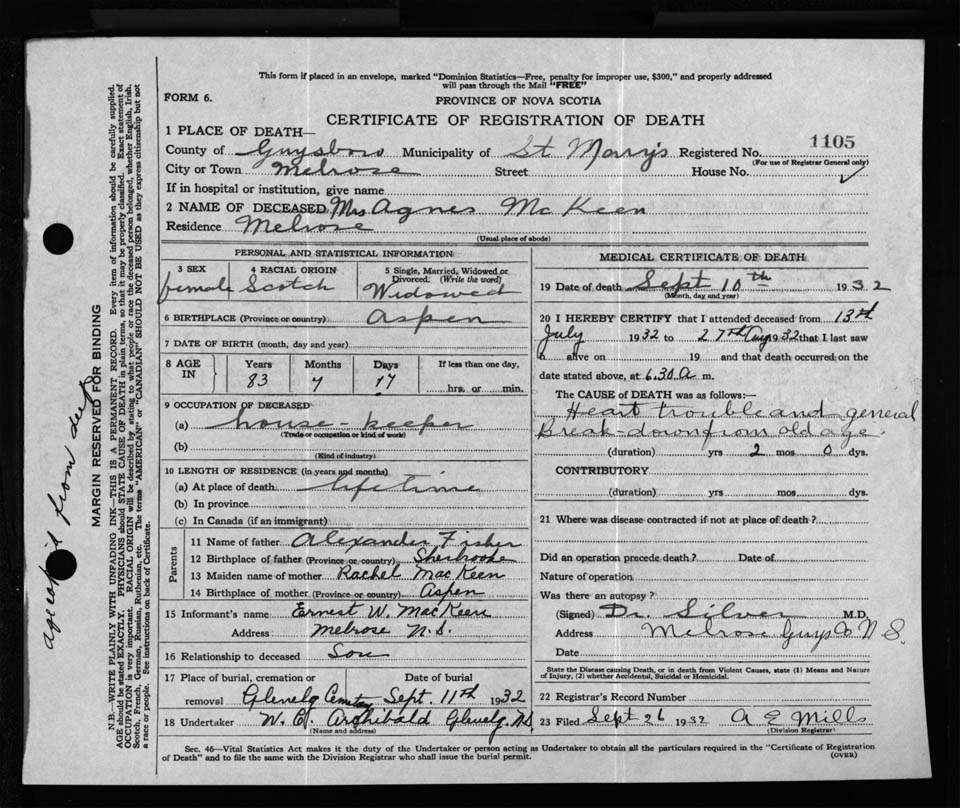 This form if placed in an envelope, marked "Dominion Statistics—Free, penalty for improper use, $300," and properly addressed
will pass through the Mail "FREE"
FORM 6.
PROVINCE OF NOVA SCOTIA
CERTIFICATE OF REGISTRATION OF DEATH
1 PLACE OF DEATH—
1105
County of Guysboro Municipality of St. Mary's Registered No.
(For use of Registrar General only)
City or Town Melrose Street House No.
If in hospital or institution, give name
2 NAME OF DECEASED Mrs Agnes McKeen
Residence Melrose
(Usual place of abode)
PERSONAL AND STATISTICAL INFORMATION
3 SEX 4 RACIAL ORIGIN 5 Single, Married, Widowed or Divorced. (Write the word)
female Scotch Widowed
6 BIRTHPLACE (Province or country) Aspen
7 DATE OF BIRTH (month, day and year)
8 AGE IN Years Months Days If less than one day,
83 7 17 hrs. or min.
9 OCCUPATION OF DECEASED
(a) house-keeper
(Trade or occupation or kind of work)
(b)
(Kind of industry)
10 LENGTH OF RESIDENCE (in years and months)
(a) At place of death lifetime
(b) In province
(c) In Canada (if an immigrant)
Parents
11 Name of father Alexander Fisher
12 Birthplace of father (Province or country) Sherbrooke
13 Maiden name of mother Rachel MacKeen
14 Birthplace of mother (Province or country) Aspen
15 Informant's name Ernest W. MacKeen
Address Melrose N.S.
16 Relationship to deceased Son
17 Place of burial, cremation or removal Date of burial
Glenelg Cemetary Sept. 11th 1932
18 Undertaker W. E. Archibald Glenelg. N.S.
(Name and address)
MEDICAL CERTIFICATE OF DEATH
19 Date of death Sept 10th 1932
(Month, day and year)
20 I HEREBY CERTIFY that I attended deceased from 13th
July 1932 to 27th Aug 1932 that I last saw
h alive on 19 and that death occurred on
date stated above, at 6.30 a m.
The CAUSE of DEATH was as follows:—
Heart trouble and general
Break-down from old age.
(duration) yrs 2 mos 0 dys.
CONTRIBUTORY
(duration) yrs mos dys.
21 Where was disease contracted if not at place of death?
Did an operation precede death? Date of
Nature of operation
Was there an autopsy?
(Signed) Dr. Silver M.D.
Address Melrose Guys Co N.S.
Date
State the Disease causing Death, or in death from Violent Causes, state (1) Means and Nature
of Injury, (2) whether Accidental, Suicidal or Homicidal.
22 Registrar's Record Number
23 Filed Sept 26 1932 A E Mills
(Division Registrar)
Sec. 46—Vital Statistics Act makes it the duty of the Undertaker or person acting as Undertaker to obtain all the particulars required in the "Certificate of Registration
of Death" and to file the same with the Division Registrar who shall issue the burial permit.
(OVER)
MARGIN RESERVED FOR BINDING
N.B.—WRITE PLAINLY WITH UNFADING INK—THIS IS A PERMANENT RECORD. Every item of information should be carefully supplied.
AGE should be stated EXACTLY. PHYSICIANS should STATE CAUSE OF DEATH in plain terms, so that it may be properly classified. Exact statement of
OCCUPATION is very important. RACIAL ORIGIN will be described by stating to what people or race the deceased person belonged, whether English, Irish,
Scotch, French, German, Russian, Ruthenian, etc. The terms "AMERICAN" or "CANADIAN" SHOULD NOT BE USED as they express citizenship but not
a race or people. See instructions on back of Certificate.